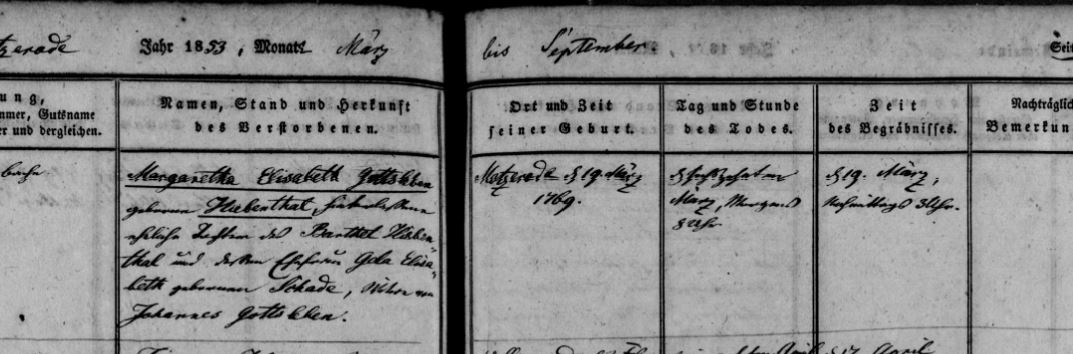 tzerode Jahr 1853, Monat März
bis September
Seit
ung,
mmer, Gutsname
er und dergleichen.
Namen, Stand und Herkunft
des Verstorbenen.
Ort und Zeit
seiner Geburt.
Tag und Stunde
des Todes.
Zeit
des Begräbnisses.
Nachträglich
Bemerkun
Margaretha Elisabeth Gottsleben
geborene Hiebenthal, hinterlassene
eheliche Tochter des Barthel Hieben-
thal und dessen Ehefrau Gela Elisa-
beth geborenen Schade, Witwe von
Johannes Gottsleben.
Metzerode d 19 März
1769.
d sechszehnten
März, Morgens
3 Uhr
d 19. März,
Nachmittags 3 Uhr.